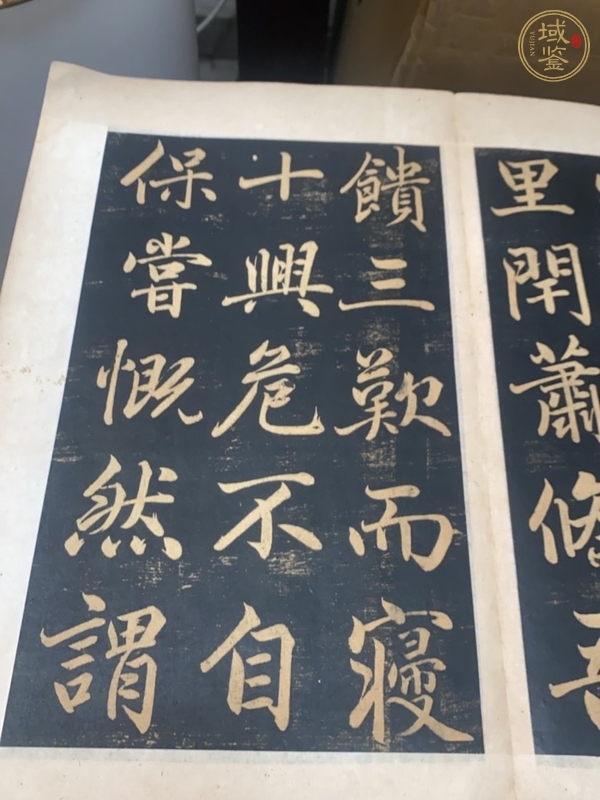 里閈蕭
饋三歎而寢
十興危不自
保嘗慨然謂
域鉴
YUJIAN